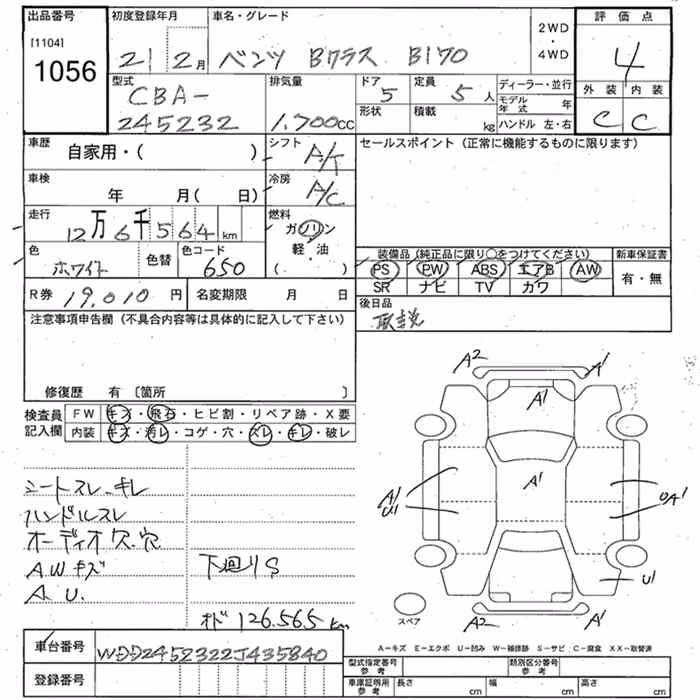 出品番号 初度登録年月 車名・グレード 2WD・4WD 評価点
[1104]
1056 21 2月 ベンツ Bクラス B170 4
型式 排気量 ドア 定員 ディーラー・並行 外装 内装
CBA- 5 5人 モデル年式 年 C C
245232 1,700cc 形状 積載 kg ハンドル 左・右
車歴 自家用・( ) シフト A/T セールスポイント (正常に機能するものに限ります)
車検 年 月( 日) 冷房 A/C
走行 12万6千564km 燃料 ガソリン・軽・油( )
色 ホワイト 色替 色コード 650 装備品 (純正品に限り○をつけてください) 新車保証書
PS PW ABS エアB AW 有・無
SR ナビ TV カワ
R券 19,010円 名変期限 月 日 後日品
注意事項申告欄 (不具合内容等は具体的に記入して下さい) 取説
修復歴 有 〔箇所 〕
検査員 FW キズ・飛石・ヒビ割・リペア跡・X要
記入欄 内装 キズ・汚レ・コゲ・穴・スレ・キレ・破レ
A2 A1
A1
シートスレ、キレ
A1 U1 A1 A1
ハンドルスレ
オーディオ欠、穴
A.Wキズ 下廻りS
U1
A.U.
オド 126,565km
スペア A2 A1
A−キズ E−エクボ U−凹み W−補修跡 S−サビ C−腐食 XX−取替済
車台番号 WDD2452322J435840
型式指定番号 参考 類別区分番号 参考
登録番号 車庫証明用 参考 長さ cm 幅 cm 高さ cm